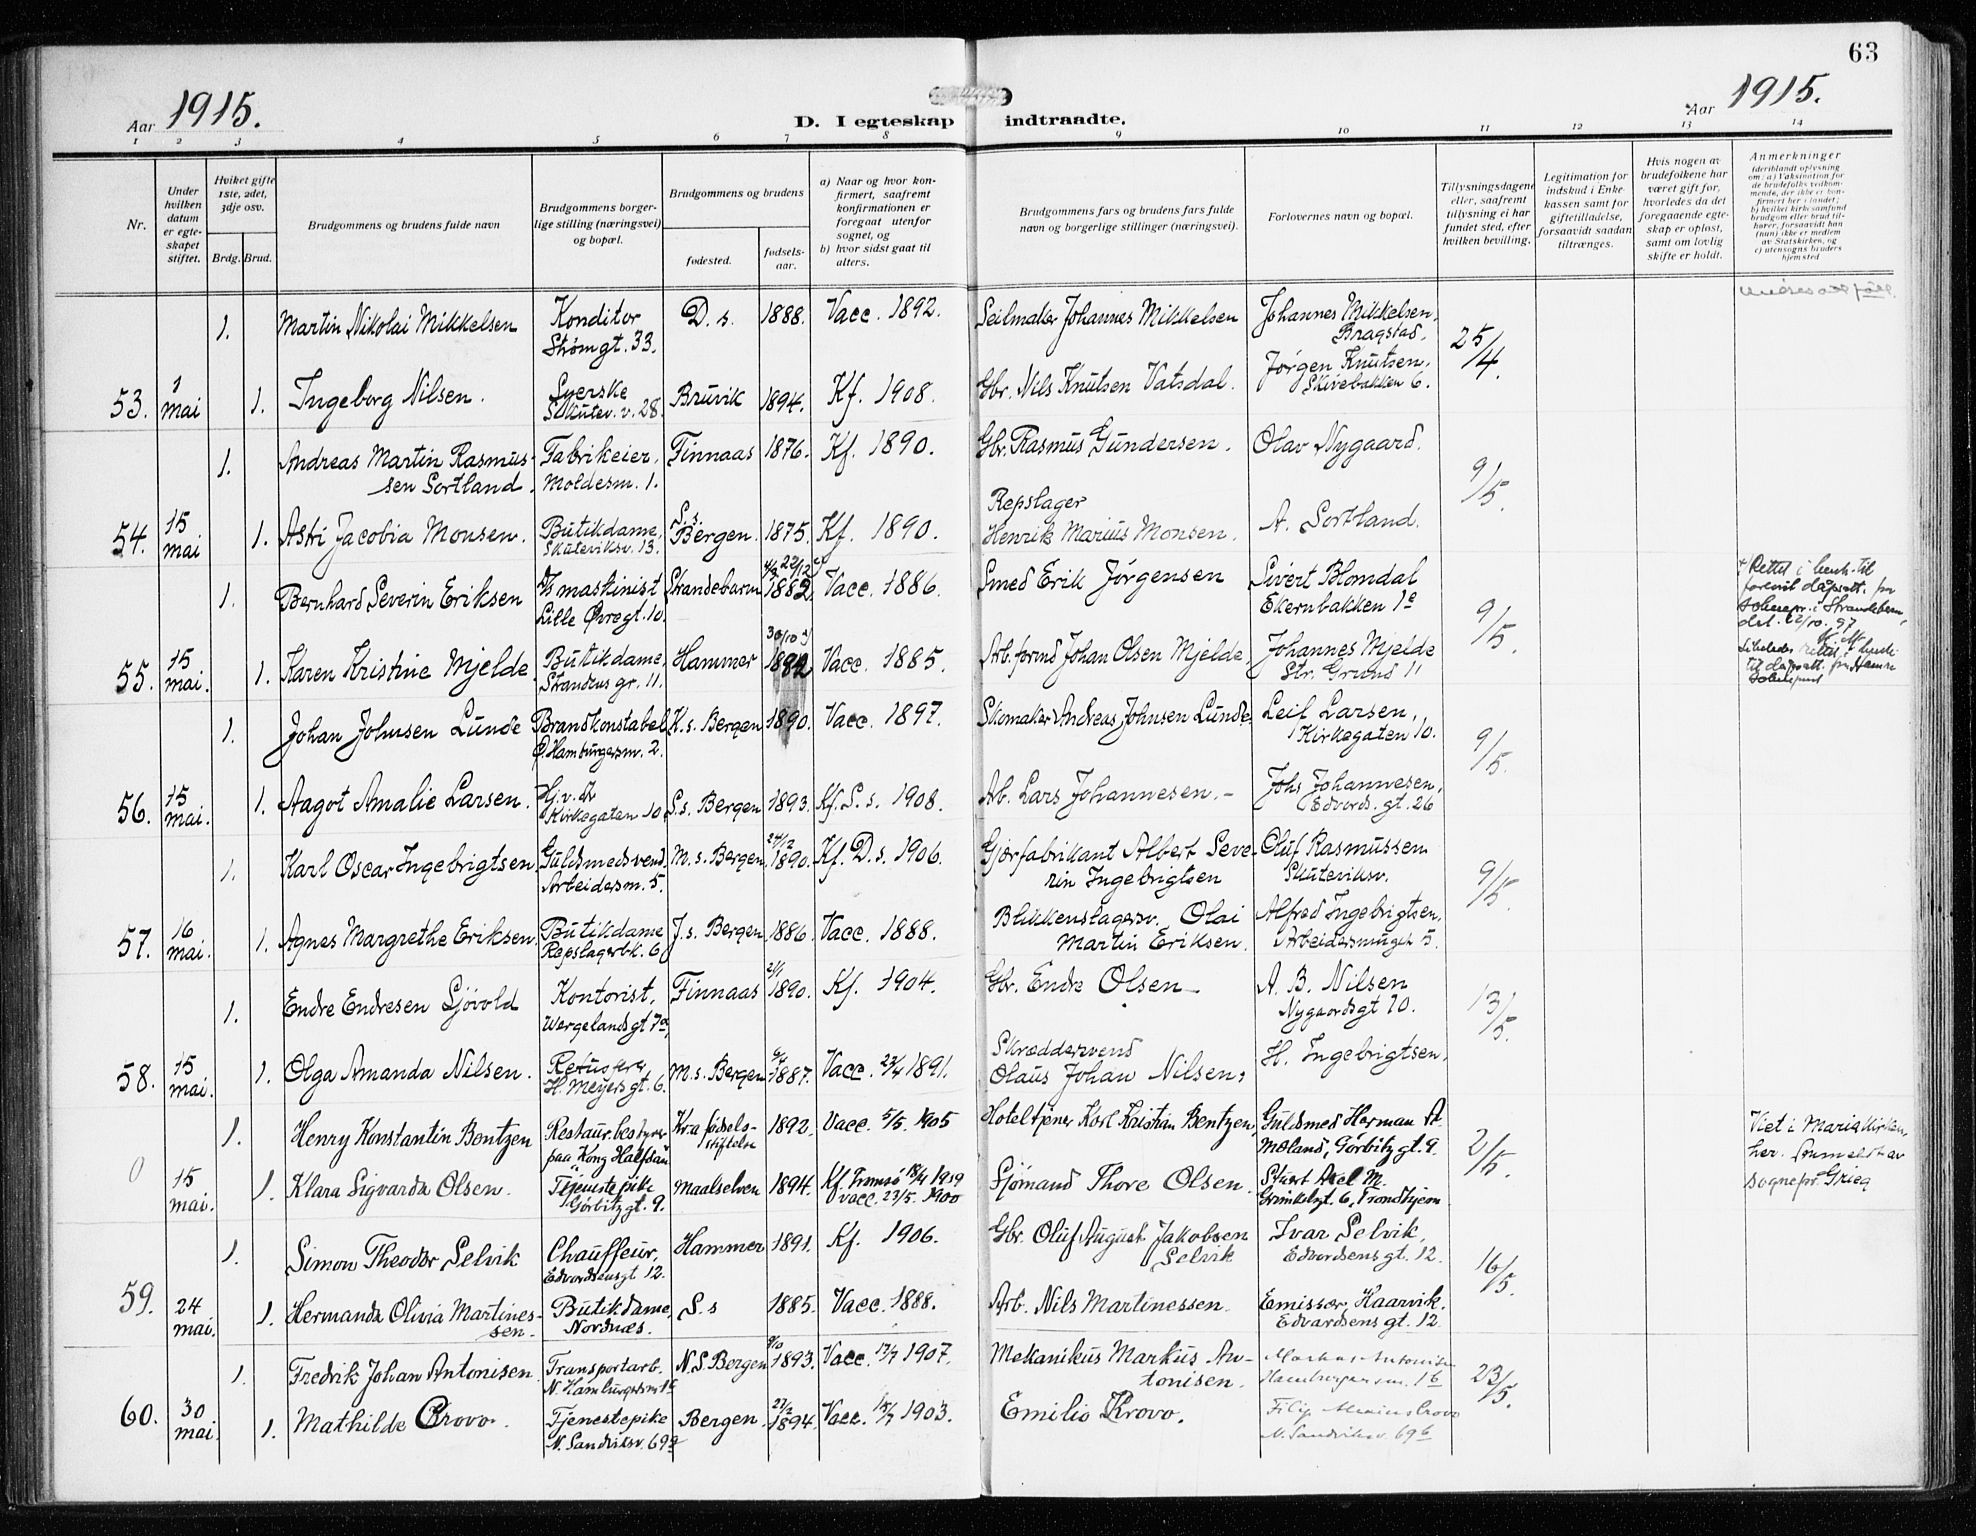 63
Aar 1915.
D. I egteskap indtraadte.
Aar 1915.
1 2 3 4 5 6 7 8 9 10 11 12 13 14
Nr.
Under hvilken datum er egteskapet stiftet.
Hvilket gifte 1ste, 2det, 3dje osv.
Brdg. Brud.
Brudgommens og brudens fulde navn
Brudgommens borgerlige stilling (næringsvei) og bopæl.
Brudgommens og brudens
fødested.
fødselsaar.
a) Naar og hvor konfirmert, saafremt konfirmationen er foregaat utenfor sognet, og
b) hvor sidst gaat til alters.
Brudgommens fars og brudens fars fulde navn og borgerlige stillinger (næringsvei).
Forlovernes navn og bopæl.
Tillysningsdagene eller, saafremt tillysning ei har fundet sted, efter hvilken bevilling.
Legitimation for indskud i Enkekassen samt for giftetilladelse, forsaavidt saadan tiltrænges.
Hvis nogen av brudefolkene har været gift før, hvorledes da det foregaaende egteskap er opløst, samt om lovlig skifte er holdt.
Anmerkninger
(deriblandt oplysning om: a) Vaksination for de brudefolks vedkommende, der ikke er konfirmert her i landet; b) hvilket kirkesamfund brudgom eller brud tilhører, forsaavidt han (hun) ikke er medlem av Statskirken, og c) utensogns bruders hjemsted
1. Martin Nikolai Mikkelsen Konditor D. s. 1888. Vacc. 1892. Seilmaker Johannes Mikkelsen Johannes Mikkelsen, 25/4.
Strømgt. 33. Bragstad.
Jørgen Knutsen,
53. 1 mai 1. Ingeborg Nilsen. Syerske Bruvik 1894. Kf. 1908. Gbr. Nils Knutsen Vatsdal. Skivebakken 6.
Skutev. v. 28.
1. Andreas Martin Rasmus- Fabrikeier, Finnaas 1876. Kf. 1890. Gbr. Rasmus Gundersen. Olav Nygaard. 9/5.
sen Sortland. Moldesm. 1.
Repslager
54. 15 mai 1. Astri Jacobia Monsen. Butikdame, S. s. Bergen. 1875. Kf. 1890. Henrik Marius Monsen. A. Sortland.
Skuteviksv. 13.
1. Bernhard Severin Eriksen maskinist Strandebarm 22/12 1882 Vacc. 1886. Smed Erik Jørgensen Sivert Blomdal 9/5.
Lille Øvregt. 10. Ekernbakken 1e
+ Rettet i henh. til
55. 15 mai. 1. Karen Kristine Mjelde Butikdame, Hammer 30/10 1882 Vacc. 1885. Arb. formd Johan Olsen Mjelde Johannes Mjelde
Strandens gr. 11. Str. Grund 11
1. Johan Johnsen Lunde Brandkonstabel K. s. Bergen 1890. Vacc. 1897. Skomaker Andreas Johnsen Lunde Leif Larsen, 9/5.
Ø. Hamburgersm. 2. Kirkegaten 10.
56. 15 mai. 1. Aagot Amalie Larsen. Hj. v. S. s. Bergen 1893. Kf. S. s. 1908. Arb. Lars Johannesen.- Johs Johannesen,
Kirkegaten 10. Edvards. gt. 26
1. Karl Oscar Ingebrigtsen Guldsmedsvend, M. s. Bergen 24/12 1890. Kf. D. s. 1906. Gjærfabrikant Albert Seve- Oluf Rasmussen 9/5.
Arbeidersm. 5. rin Ingebrigtsen Skuteviksv.
57. 16 mai. 1. Agnes Margrethe Eriksen Butikdame J. s. Bergen 1886. Vacc. 1888. Blikkenslagersv. Olai Alfred Ingebrigtsen,
Repslagerbk. 6 Martin Eriksen. Arbeidersmuget 5.
1. Endre Endresen Sjövold Kontorist, Finnaas 21/1 1890. Kf. 1904. Gbr. Endre Olsen A. B. Nilsen 13/5.
Wergelandsgt 7a Nygaardsgt 70.
Skræddersvend
58. 15 mai. 1. Olga Amanda Nilsen. M. s. Bergen 1887. Vacc. 23/4 1891. Olaus Johan Nilsen, H. Ingebrigtsen.
H. Meyers gt. 6.
1. Henry Konstantin Bentzen Restaur. bestyrer Kr.a fødsels- 1892. Vacc. 5/5. 1905 Hoteltjener Karl Kristian Bentzen, Guldsmed Herman A. 2/5.
paa "Kong Halfdan" stiftelse Mæland, Görbitzgt. 9
Viet i Mariakirken,
0 15 mai. 1. Klara Sigvarda Olsen. Tjenestepike Maalselven 1894. Kf Tromsö 18/9 1909 Sjømand Thore Olsen Stuert Axel M.
Görbitzgt. 9. vacc. 27/5. 1900 Grimkelsgt. 6, Trondhjem
sognepr. Grieg
1. Simon Theodor Selvik Chauffeur, Hammer 1891. Kf. 1906. Gbr. Oluf August Jakobsen Ivar Selvik, 16/5.
Edvardsensgt 12. Selvik Edvardsens gt. 12.
59. 24 mai. 1. Hermanda Olivia Martines- Butikdame, S. s 1885. Vacc. 1888. Arb. Nils Martinessen. Emissær, Haarvik.
sen. Nordnæs. Edvardsens gt. 12
1. Fredrik Johan Antonisen Transportarb. N. S. Bergen 9/10 1893. Vacc. 17/7 1907. Mekanikus Markus An- Markus Antonisen 23/5.
N. Hamburgersm 16 tonisen. Hamburgersm. 16
60. 30 mai. 1. Mathilde Crovo. Tjenestepike Bergen. 27/2 1894. Vacc. 1903. Emilio Krovo. Filip Crovo
N. Sandviksv. 69a N. Sandviksv. 69b